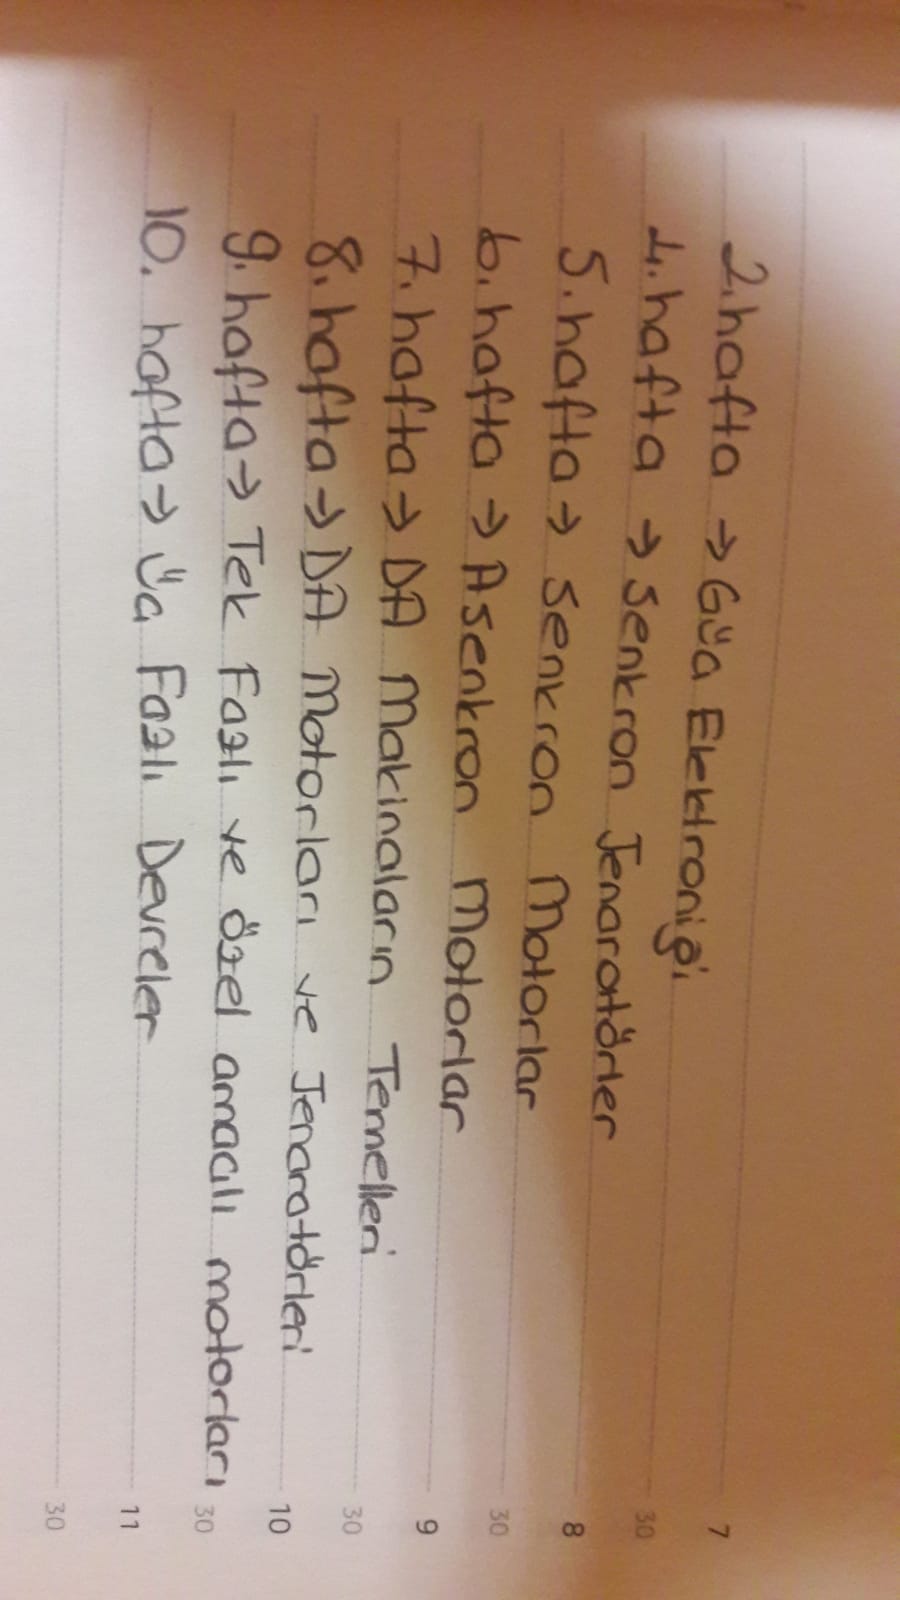 2.hafta → Güç Elektroniği
7
4.hafta → Senkron Jenaratörler
30
5.hafta → Senkron Motorlar
8
6.hafta → Asenkron Motorlar
30
9
7.hafta → DA Makinaların Temelleri
30
8.hafta → DA Motorları ve Jenaratörleri
10
9.hafta → Tek Fazlı ve özel amaçlı motorları
30
10. hafta → Üç Fazlı Devreler
11
30